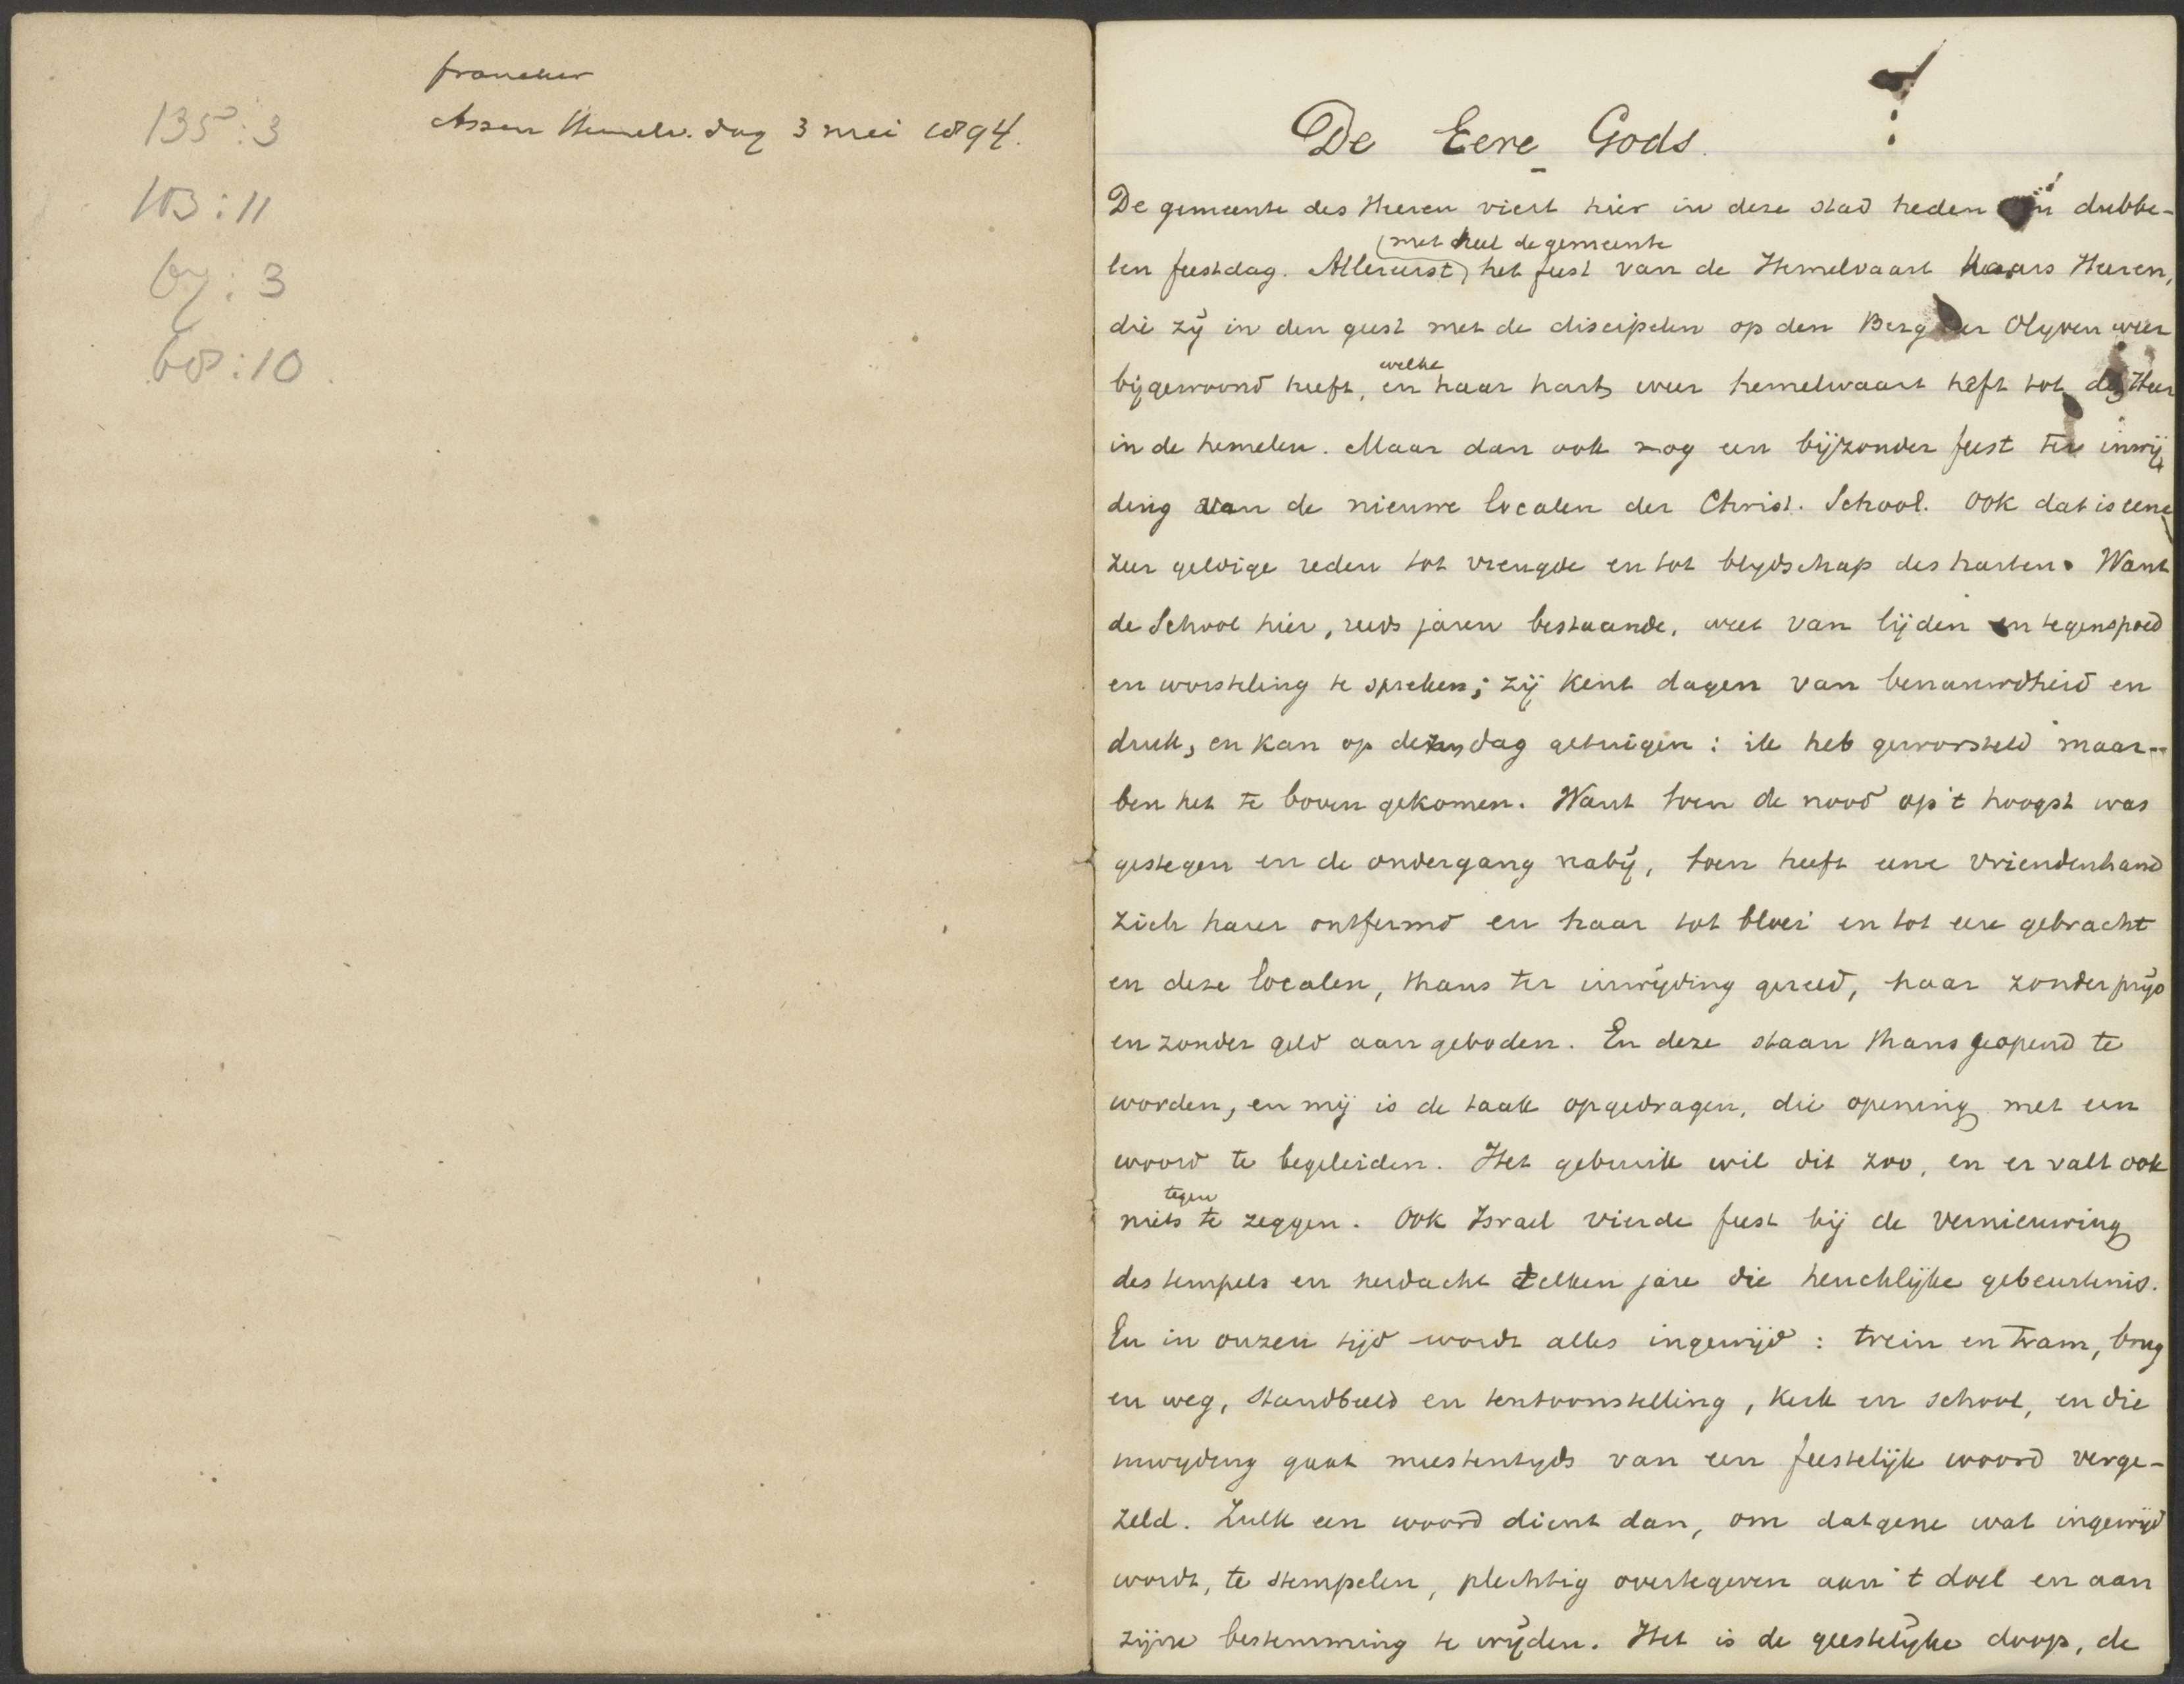 franeker
Assen Hemelv. dag 3 mei 1894.
135:3
103:11
67:3
68:10
De Eere Gods.
De gemeente des Heeren viert hier in deze stad heden dubbe-
met heel de gemeente
len feestdag. Allereerst het feest van de Hemelvaart haars Heeren,
die zij in den geest met de discipelen op den Berg der Olyven weer
welke
bijgewoond heeft, en haar hart weer hemelwaart heft tot den Heer
in de hemelen. Maar dan ook nog een bijzonder feest ter inwij
ding van de nieuwe localen der Christ. School. Ook dat is eene
zeer geldige reden tot vreugde en tot blydschap des harten. Want
de School hier, reeds jaren bestaande, weet van lijden en tegenspoed
en worsteling te spreken; zij kent dagen van benauwdheid en
druk, en kan op dezen dag getuigen: ik heb geworsteld maar
ben het te boven gekomen. Want toen de nood op 't hoogst was
gestegen en de ondergang nabij, toen heeft eene vriendenhand
zich harer ontfermd en haar tot bloei en tot eere gebracht
en deze localen, thans ter inwijding gereed, haar zonder prijs
en zonder geld aangeboden. En deze staan thans geopend te
worden, en mij is de taak opgedragen, die opening met een
woord te begeleiden. Het gebruik wil dit zoo, en er valt ook
tegen
niets te zeggen. Ook Israel vierde feest bij de vernieuwing
des tempels en herdacht telken jare die heuchlijke gebeurtenis.
En in onzen tijd wordt alles ingewijd: trein en tram, brug
en weg, standbeeld en tentoonstelling, kerk en school, en die
inwyding gaat meestentyds van een feestelijk woord verge-
zeld. Zulk een woord dient dan, om datgene wat ingewijd
wordt, te stempelen, plechtig overtegeven aan 't doel en aan
zijne bestemming te wijden. Het is de geestelijke doop, de